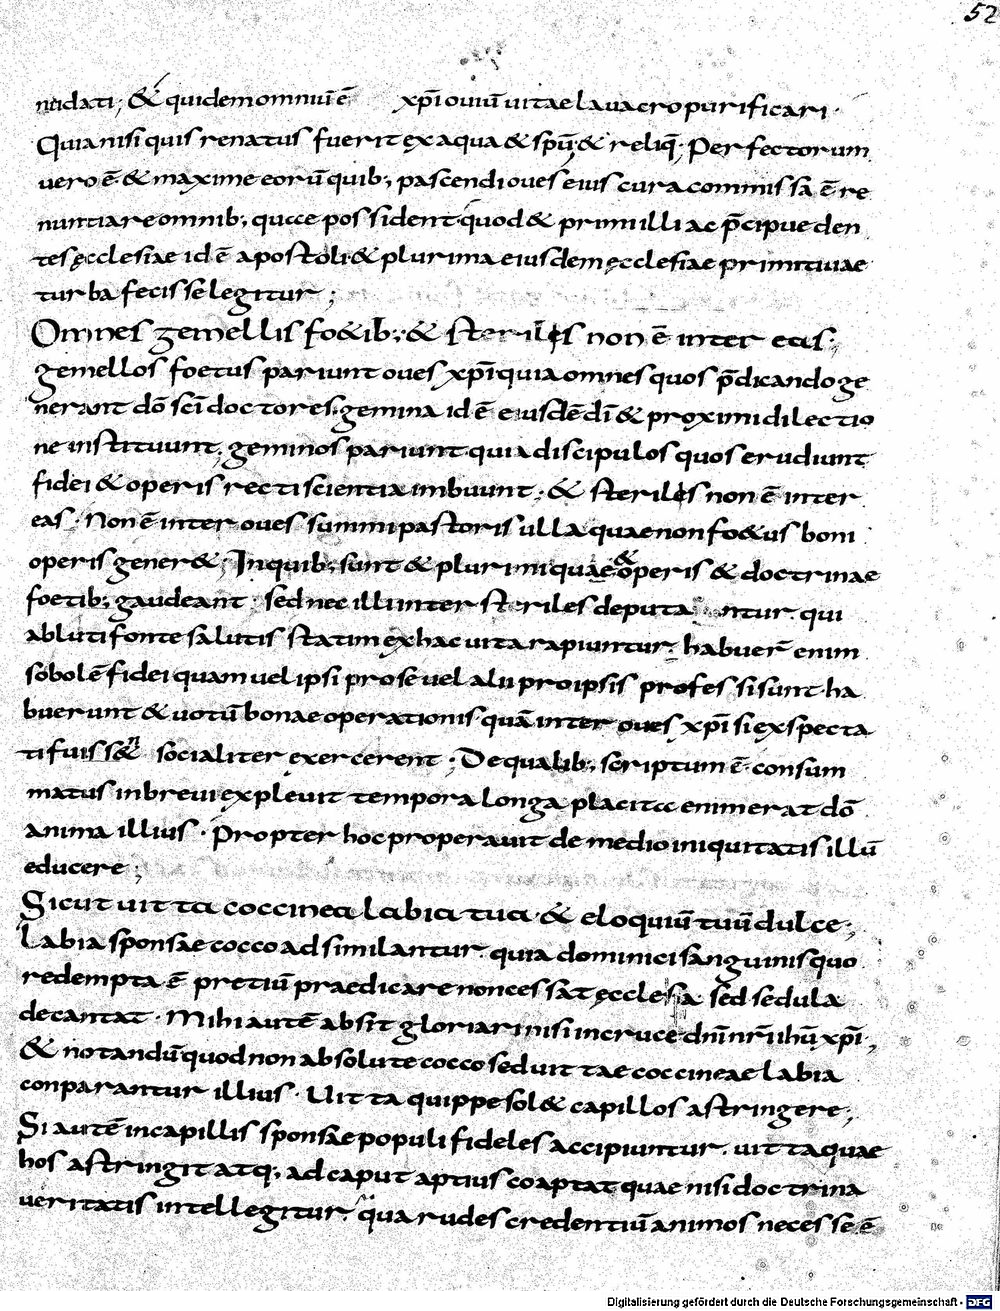 52
nudati; & quidem omniū ē xp̄i oviū vitae lavacro purificari.
Quia nisi quis renatus fuerit ex aqua & spū; & reliq̄; Perfectorum
vero ē & maxime eorū quib; pascendi oves eius cura commissa ē re
nuntiare omnib; quae possident quod & primi illi ac p̄cipue den
tes ęcclesiae id ē apostoli & plurima eiusdem ęcclesiae primitivae
turba fecisse legitur;
Omnes gemellis fo&ib; & steriles non ē inter eas;
gemellos foetus pariunt oves xp̄i quia omnes quos p̄dicando ge
nerant dō sc̄i doctores gemina id ē eiusdē dī & proximi dilectio
ne instituunt; geminos pariunt quia discipulos quos erudiunt
fidei & operis recti scientia imbuunt; & steriles non ē inter
eas. Non ē inter oves summi pastoris ulla quae non fo&us boni
operis gener&; In quib; sunt & plurimi quae & operis & doctrinae
foetib; gaudeant; sed nec illi inter steriles deputantur. qui
abluti fonte salutis statim ex hac vita rapiuntur; habuer̄ enim
sobolē fidei quam vel ipsi pro se vel alii pro ipsis professi sunt. ha
buerunt & votū bonae operationis quā inter oves xp̄i si exspecta
ti fuiss&n socialiter exercerent; De qualib; scriptum ē. consum
matus in brevi explevit tempora longa placita enim erat dō
anima illius. Propter hoc properavit de medio iniquitatis illū
educere;
Sicut vitta coccinea labia tua & eloquiū tuū dulce;
Labia sponsae cocco adsimilantur. quia dominici sanguinis quo
redempta ē pretiū praedicare non cessat ęcclesia sed sedula
decantat. Mihi autē absit gloriari nisi in cruce dn̄i nr̄i ihū xp̄i;
& notandū quod non absolute cocco sed vittae coccineae labia
conparantur illius. Vitta quippe sol& capillos astringere;
Si autē in capillis sponsae populi fideles accipiuntur. vitta quae
hos astringit atq; ad caput aptius coaptat quae nisi doctrina
veritatis intellegitur. qua rudes credentiū animos necesse ē
Digitalisierung gefördert durch die Deutsche Forschungsgemeinschaft - DFG